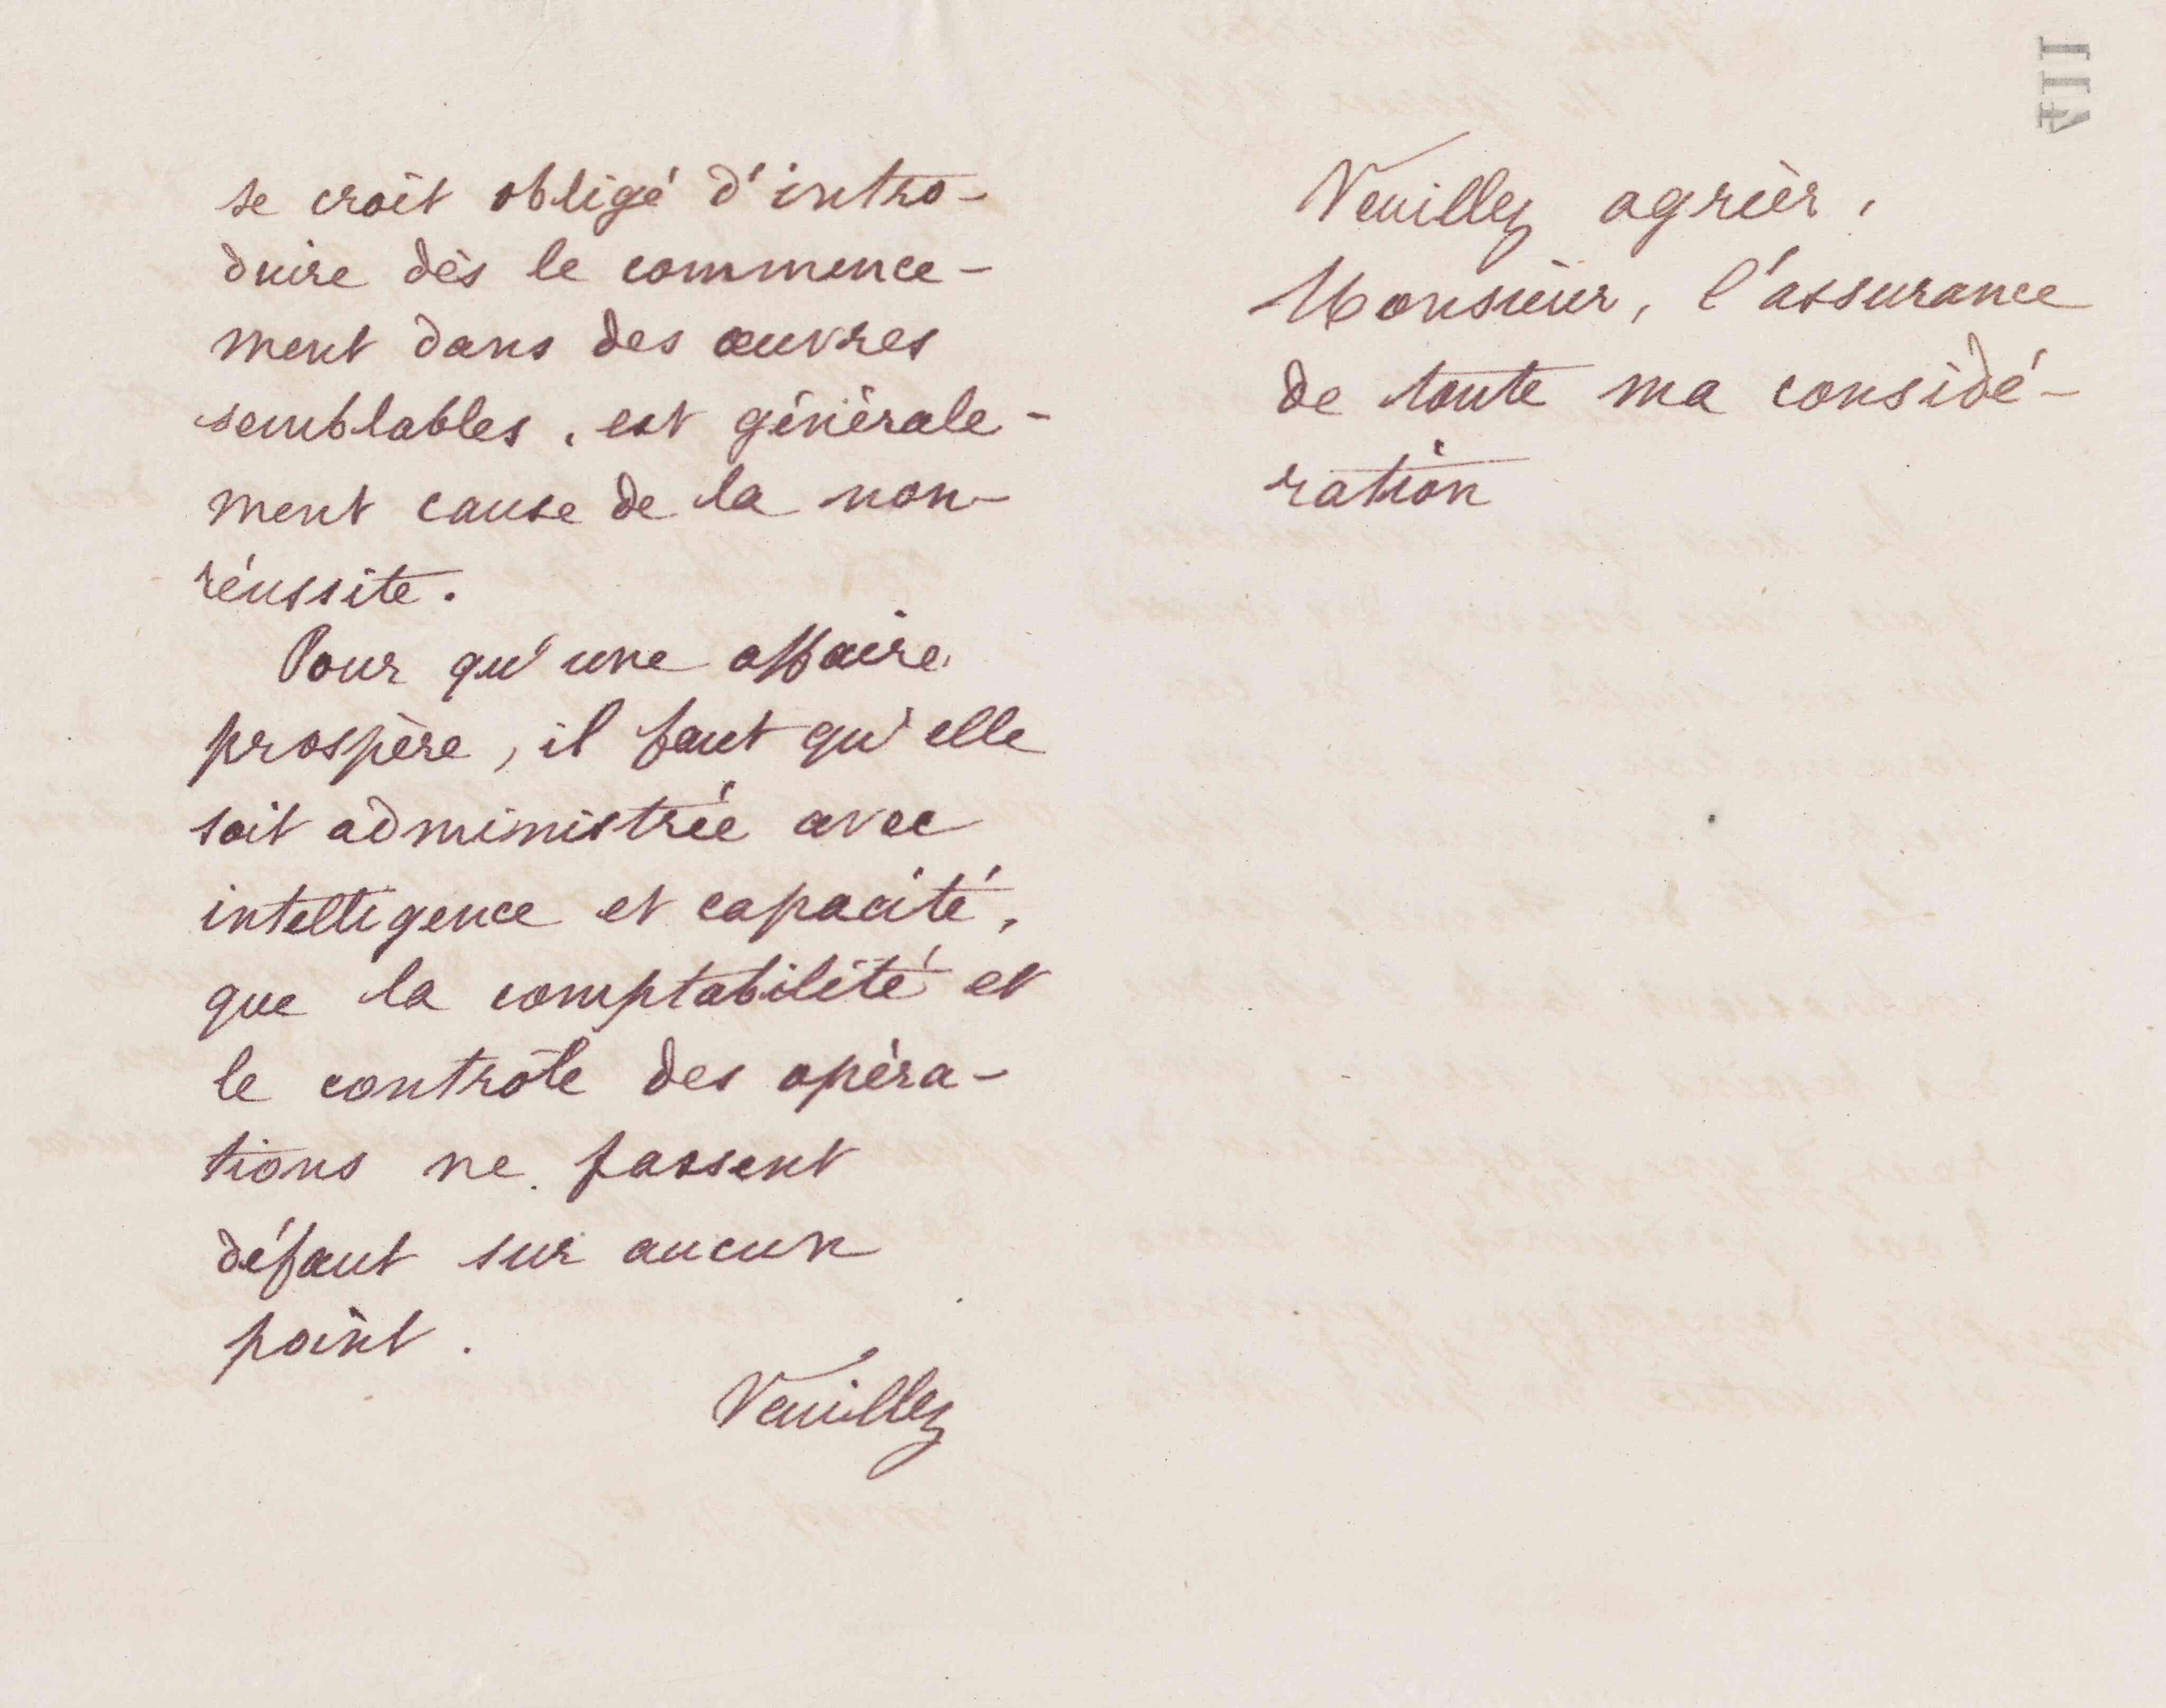 se croit obligé d'intro-
duire dès le commence-
ment dans des œuvres
semblables, est générale-
ment cause de la non-
réussite.
Pour qu'une affaire
prospère, il faut qu'elle
soit administrée avec
intelligence et capacité,
que la comptabilité et
le contrôle des opéra-
tions ne fassent
défaut sur aucun
point.
Veuillez
VII
Veuillez agréer,
Monsieur, l'assurance
de toute ma considé-
ration